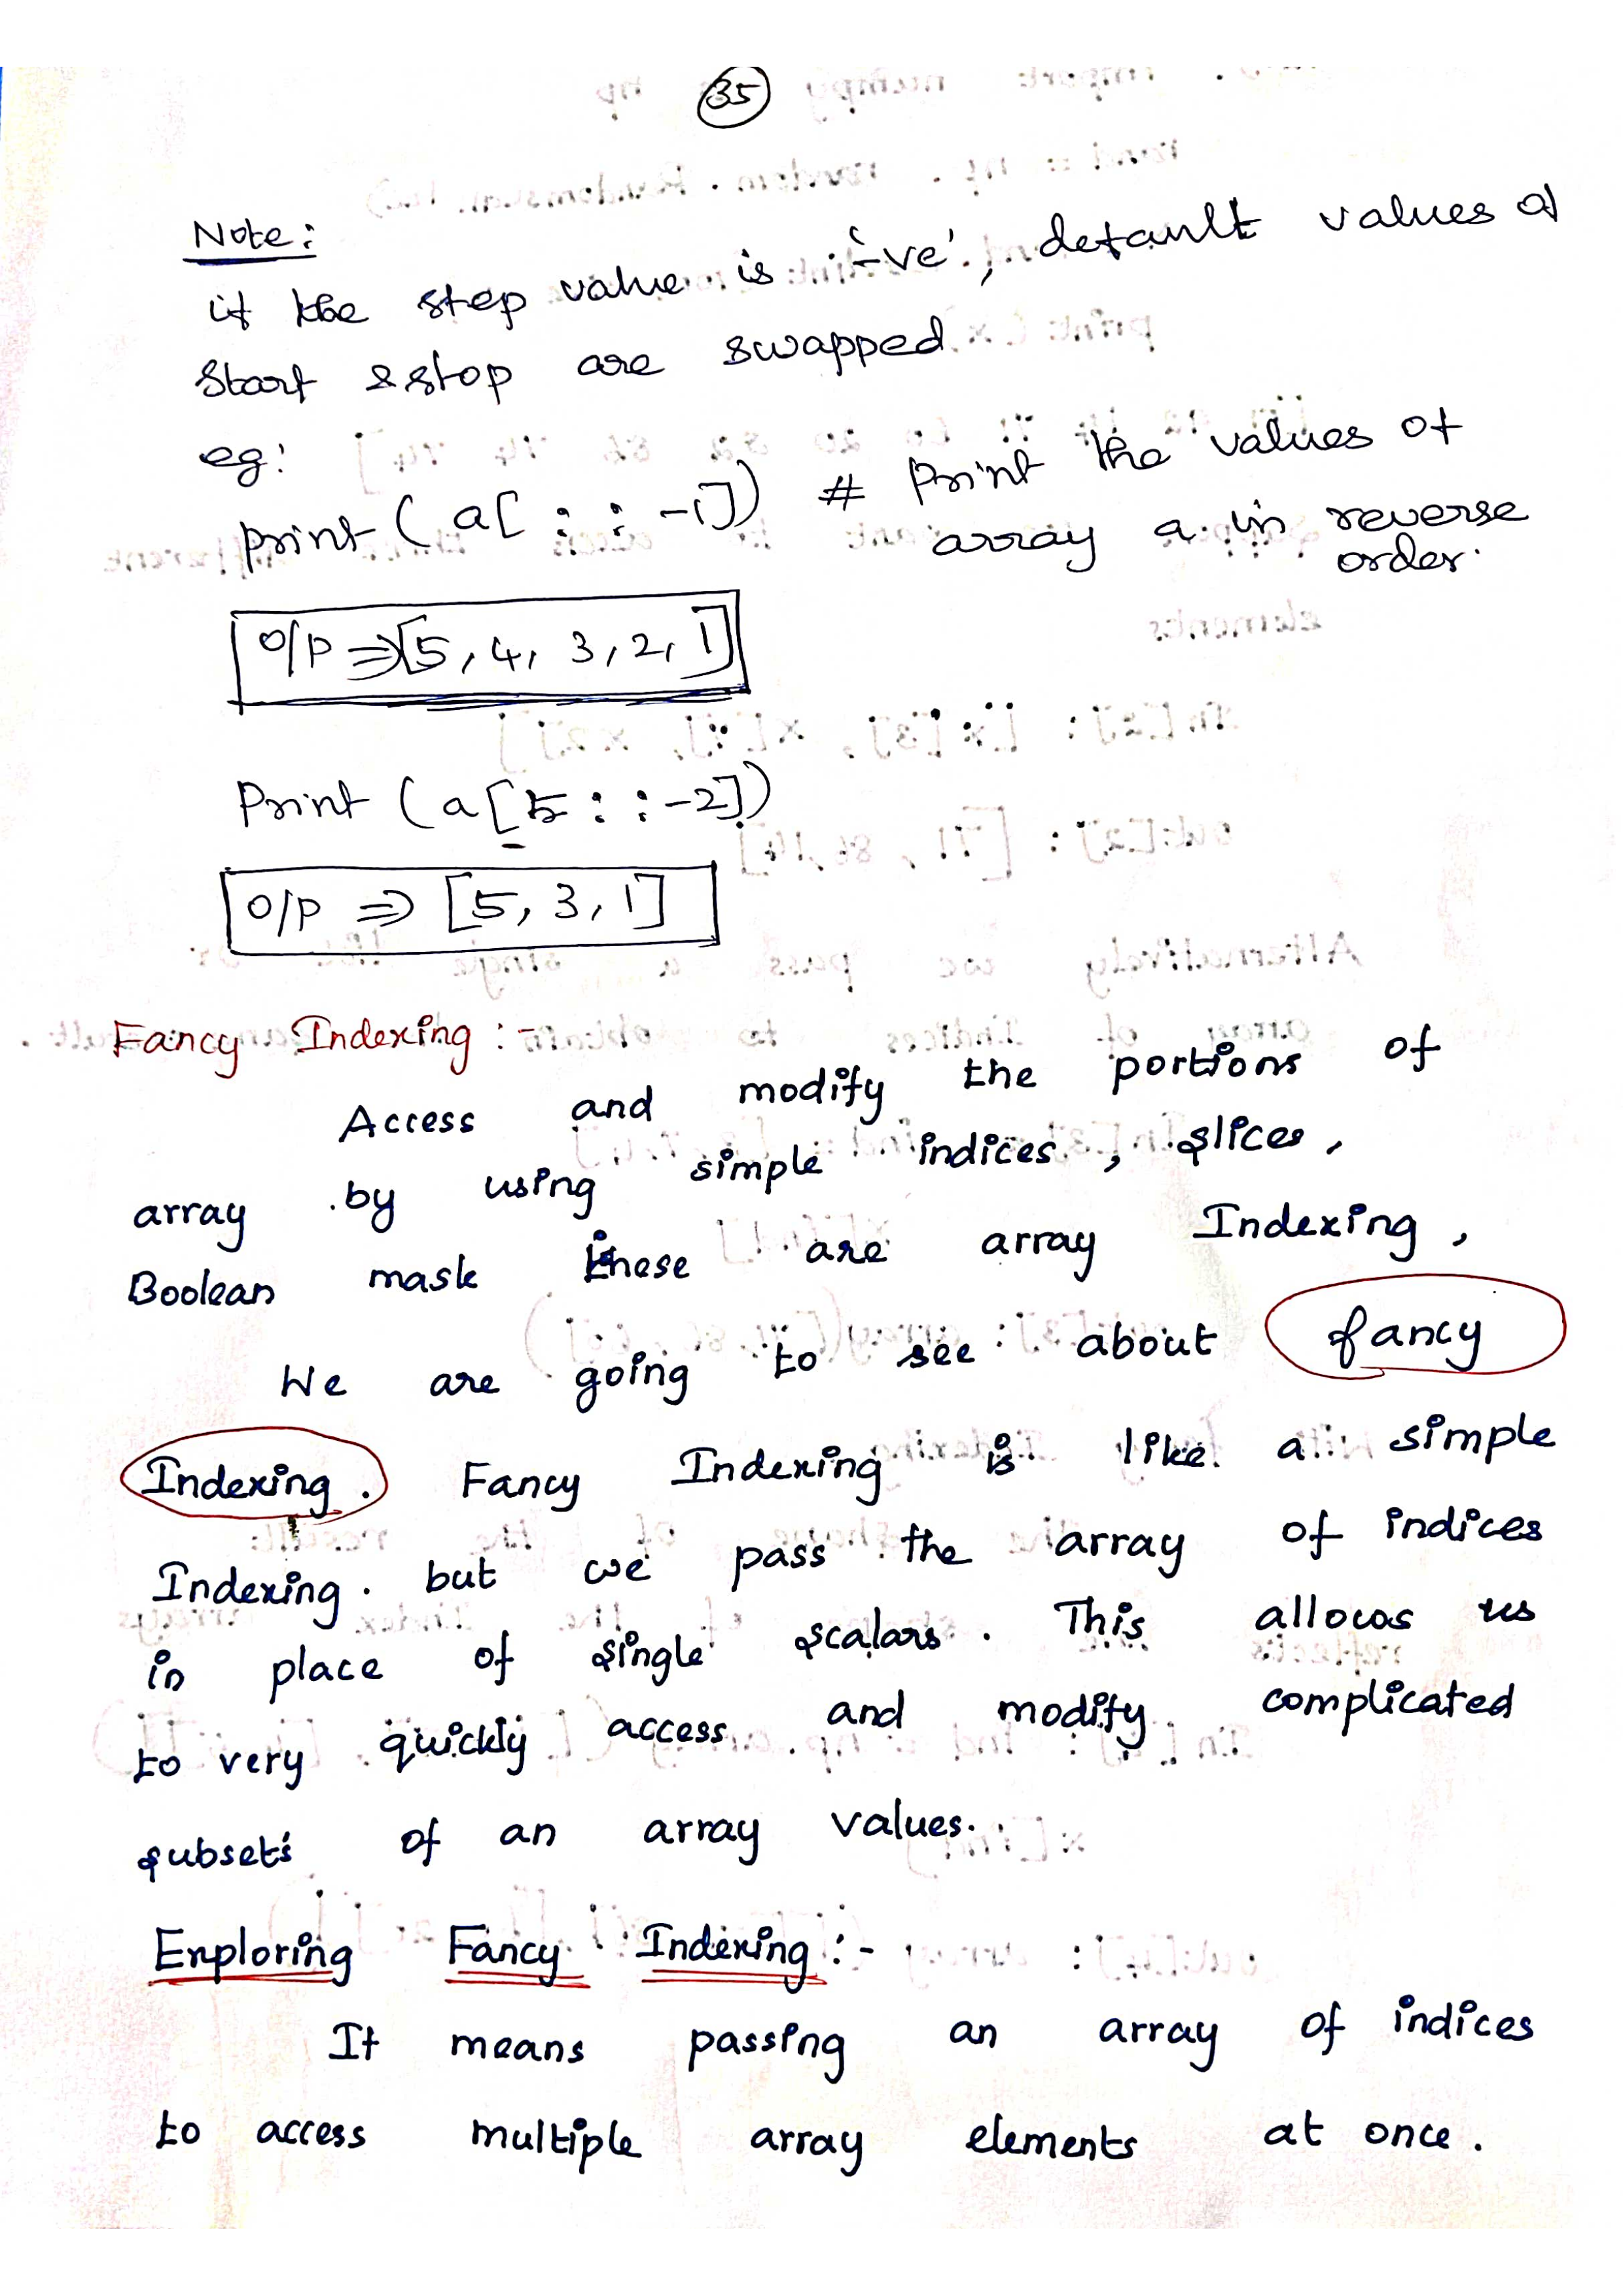 35
Note:
if the step value is '-ve', default values of
Start & stop are swapped.
eg:
print (a[ : : -1]) # Print the values of
array a in reverse
order.
O/P ⇒ [5, 4, 3, 2, 1]
Print (a[5 : : -2])
O/P ⇒ [5, 3, 1]
Fancy Indexing :-
Access and modify the portions of
array by using simple indices, slices,
Boolean mask these are array Indexing,
We are going to see about fancy
Indexing. Fancy Indexing is like a simple
Indexing. but we pass the array of indices
in place of single scalars. This allows us
to very quickly access and modify complicated
subsets of an array values.
Exploring Fancy Indexing :-
It means passing an array of indices
to access multiple array elements at once.